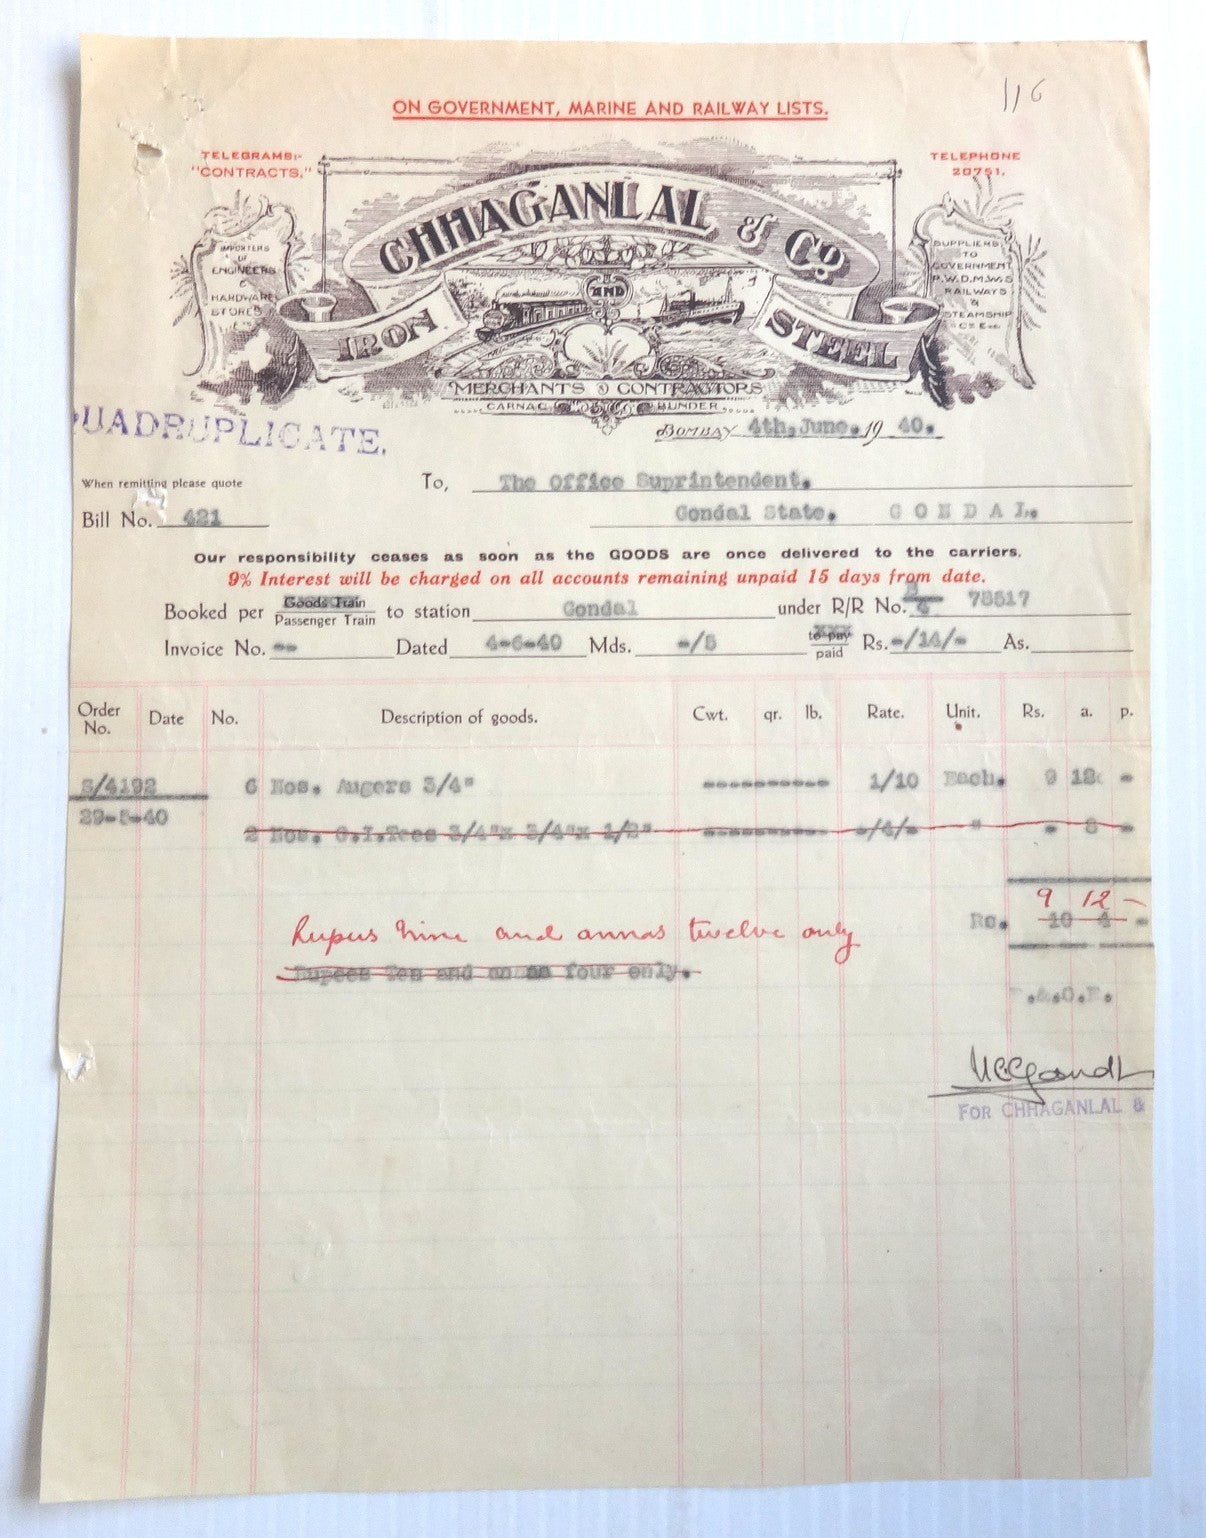 116
ON GOVERNMENT, MARINE AND RAILWAY LISTS.
TELEGRAMS:-
"CONTRACTS."
TELEPHONE
20751.
CHHAGANLAL & Co.
IRON AND STEEL
MERCHANTS & CONTRACTORS
CARNAC BUNDER
IMPORTERS
OF
ENGINEERS
&
HARDWARE
STORES
SUPPLIERS
TO
GOVERNMENT
P.W.D.M.W.S
RAILWAYS
&
STEAMSHIP
QUADRUPLICATE.
BOMBAY 4th, June. 1940.
When remitting please quote
Bill No. 421
To, The Office Suprintendent.
Gondal State. GONDAL.
Our responsibility ceases as soon as the GOODS are once delivered to the carriers.
9% Interest will be charged on all accounts remaining unpaid 15 days from date.
Booked per Goods Train / Passenger Train to station Gondal under R/R No. 78517
Invoice No. -- Dated 4-6-40 Mds. -/5 to pay / paid Rs. -/14/- As.
Order No. Date No. Description of goods. Cwt. qr. lb. Rate. Unit. Rs. a. p.
S/4192 6 Nos. Augers 3/4" ---------- 1/10 Each. 9 12 -
29-5-40
2 Nos. G.I.Tees 3/4"x 3/4"x 1/2" ---------- -/4/- " - 8 -
9 12 -
Rs. 10 4 -
Rupees nine and annas twelve only
Rupees Ten and annas four only.
E.&.O.E.
FOR CHHAGANLAL &